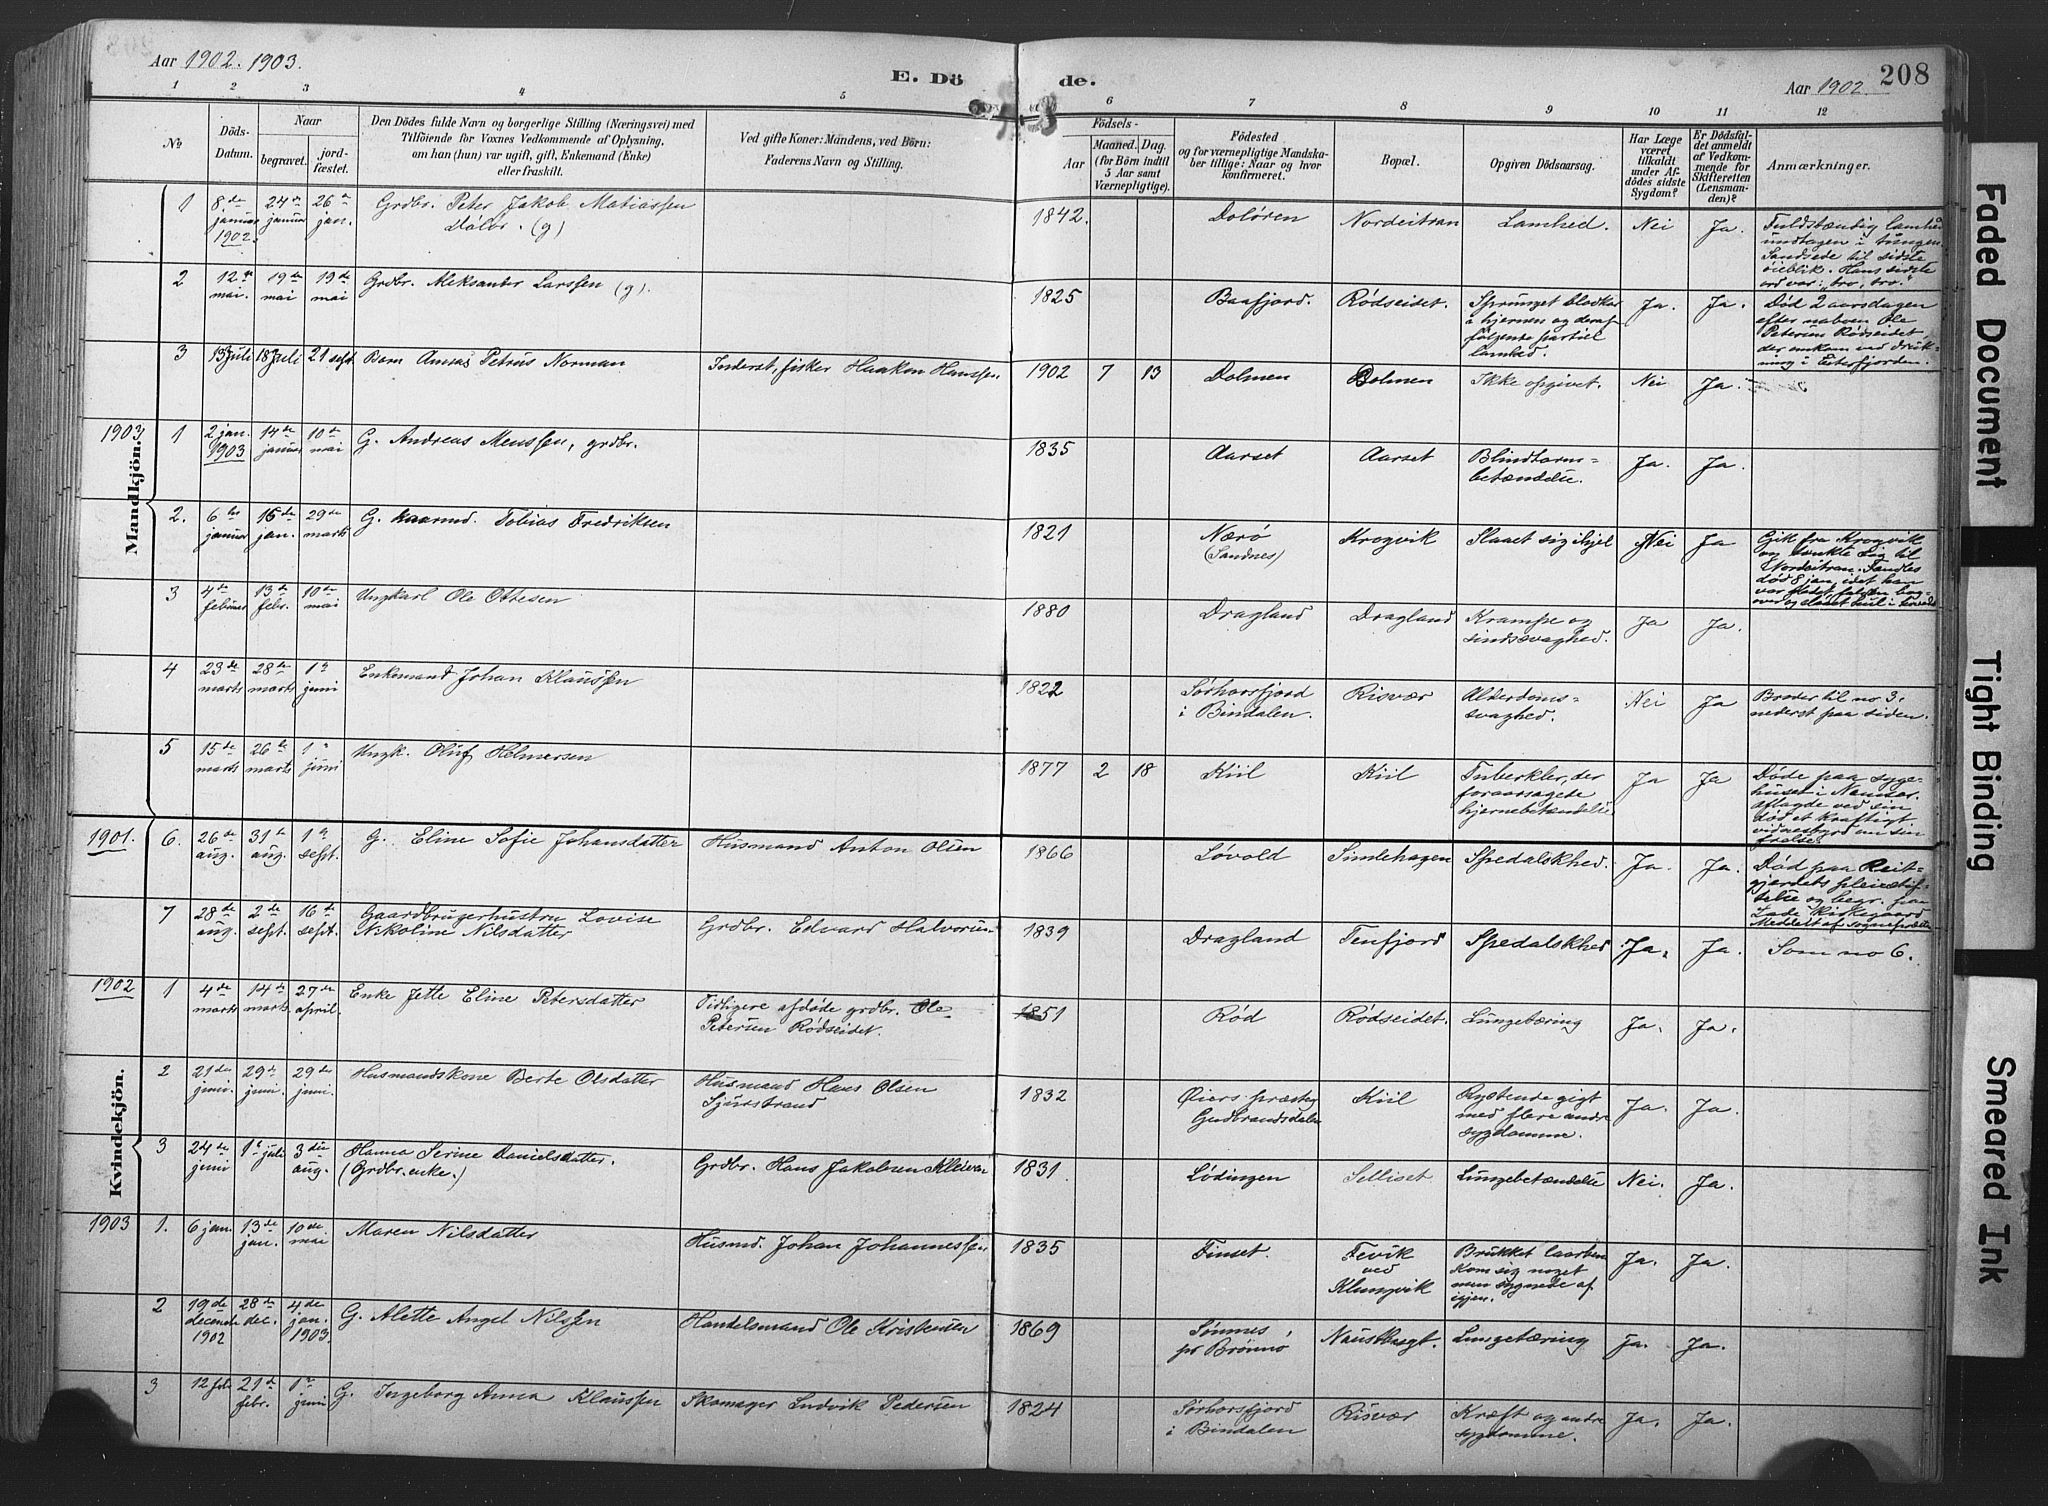 Aar 1902. 1903.
E. Dö de.
Aar 1902.
208
1 2 3 4 5 6 7 8 9 10 11 12
No
Döds-Datum.
Naar
begravet.
jordfæstet.
Den Dödes fulde Navn og borgerlige Stilling (Næringsvei) med
Tilföiende for Voxnes Vedkommende af Oplysning,
om han (hun) var ugift, gift, Enkemand (Enke)
eller fraskilt.
Ved gifte Koner: Mandens, ved Börn:
Faderens Navn og Stilling.
Födsels-
Aar
Maaned. Dag.
(for Börn indtil
5 Aar samt
Værnepligtige).
Födested
og for værnepligtige Mandskaber tillige: Naar og hvor
konfirmeret.
Bopæl.
Opgiven Dödsaarsag.
Har Læge
været
tilkaldt
under Afdödes sidste
Sygdom?
Er Dödsfaldet anmeldt
af Vedkommende for
Skifteretten
(Lensmanden)?
Anmærkninger.
Mandkjön.
1 8.de januar 1902. 24de januar 26de jan. Grdbr. Peter Jakob Matiassen Dölør. (g) 1842. Doløren Nordeitran Lamhed. Nei Ja. Fuldstændig lamhed undtagen i tungen. Sandsede til sidste øieblik. Hans sidste ord var: "tro, tro."
2 12te mai. 19de mai 19de mai Grdbr. Aleksander Larssen (g). 1825 Baafjord. Rødseidet. Sprunget blodkar i hjernen og deraf følgende partiel lamhed. Ja. Ja. Død 2 aarsdagen efter naboen Ole Petersen Rødseidet der omkom ved drukning i Eiterfjorden.
3 13 juli 18 juli 21 sept. Barn Annas Petrus Norman Inderst, fisker Haakon Hanssen 1902 7 13 Dolmen Dolmen Ikke opgivet. Nei Ja.
1903
1 2 jan. 1903 14de januar 10de mai G. Andreas Monssen, grdbr. 1835 Aarset Aarset Blindtarmsbetændelse. Ja. Ja.
2. 6te januar 15de jan. 29de marts G. kaarmd. Tobias Fredriksen 1821 Nærö (Sandnes) Krogvik Slaaet sig ihjel Nei Ja Gik fra Krogvik og tænkte sig til Nordeitran. Fandtes død 8 jan, idet han var
3 4de februar 13de febr. 10de mai Ungkarl Ole Ottesen 1880 Dragland Dragland Krampe og sindssvaghed. Ja Ja.
4 23de marts 28de marts 1ste juni Enkemand Johan Klaussen 1822 Sørhorsfjord i Bindalen. Risvær Alderdomssvaghed. Nei Ja Broder til no 3. nederst paa siden.
5 15de marts 26de marts 1 juni Ungk. Oluf Helmersen 1877 2 18 Kiil Kiil Tuberkler, der foraarsagede hjernebetændelse Ja Ja Døde paa sygehuset i Namsos. aflagde ved sin død et kraftigt vidnesbyrd om sin frelse.
Kvindekjön.
1901.
6. 26de aug. 31te aug. 1ste sept. G. Eline Sofie Johansdatter Husmand Anton Olsen 1866 Løvold Simlehagen Spedalskhed. Ja. Ja. Død paa Reitgjerdets pleiestiftelse og begr. paa Lade kirkegaard. Meddelt af sogneprest
7 28de aug. 2de sept. 16de sept. Gaardbrugerhustru Lovise Nikoline Nilsdatter Grdbr. Edvard Halvorsen 1839 Dragland Terfjord Spedalskhed Ja. Ja. Som no 6.
1902
1 4de marts 14de marts. 27de april. Enke Jette Eline Petersdatter Tidligere afdøde grdbr. Ole Petersen Rødseidet. 1851 Rød Rødseidet. Lungetæring Ja. Ja.
2 21de juni. 29de juni. 29de juni. Husmandskone Berte Olsdatter Husmand Hans Olsen Sjurstrand 1832 Øiers præstg Gudbrandsdalen Kiil Rystende gigt med flere andre sygdomme. Ja. Ja.
3 24de juni 1ste juli 3die aug. Hanna Serine Danielsdatter. (Grdbr. enke.) Grdbr. Hans Jakobsen Kleivan 1831 Lødingen Selliset Lungebetændelse Nei. Ja.
1903
1. 6 jan. 13de jan. 10de mai Maren Nilsdatter Husmd. Johan Johannessen 1835 Finset. Fevik ved Klungvik Brukket laarben. Kom sig noget men sygnede af igjen. Ja. Ja.
2 19de decembr 1902 28de dec. 4de jan. 1903. G. Alette Angel Nilssen Handelsmand Ole Kristensen 1869 Sömnes pr Brønnø Lungetæring Ja. Ja.
3 12 feb. 21de febr. 1ste juni G. Ingeborg Anna Klaussen Skomager Ludvik Pedersen 1824 Sørhorsfjord i Bindalen Risvær Kræft og andre sygdomme. Ja. Ja.
Faded Document
Tight Binding
Smeared Ink